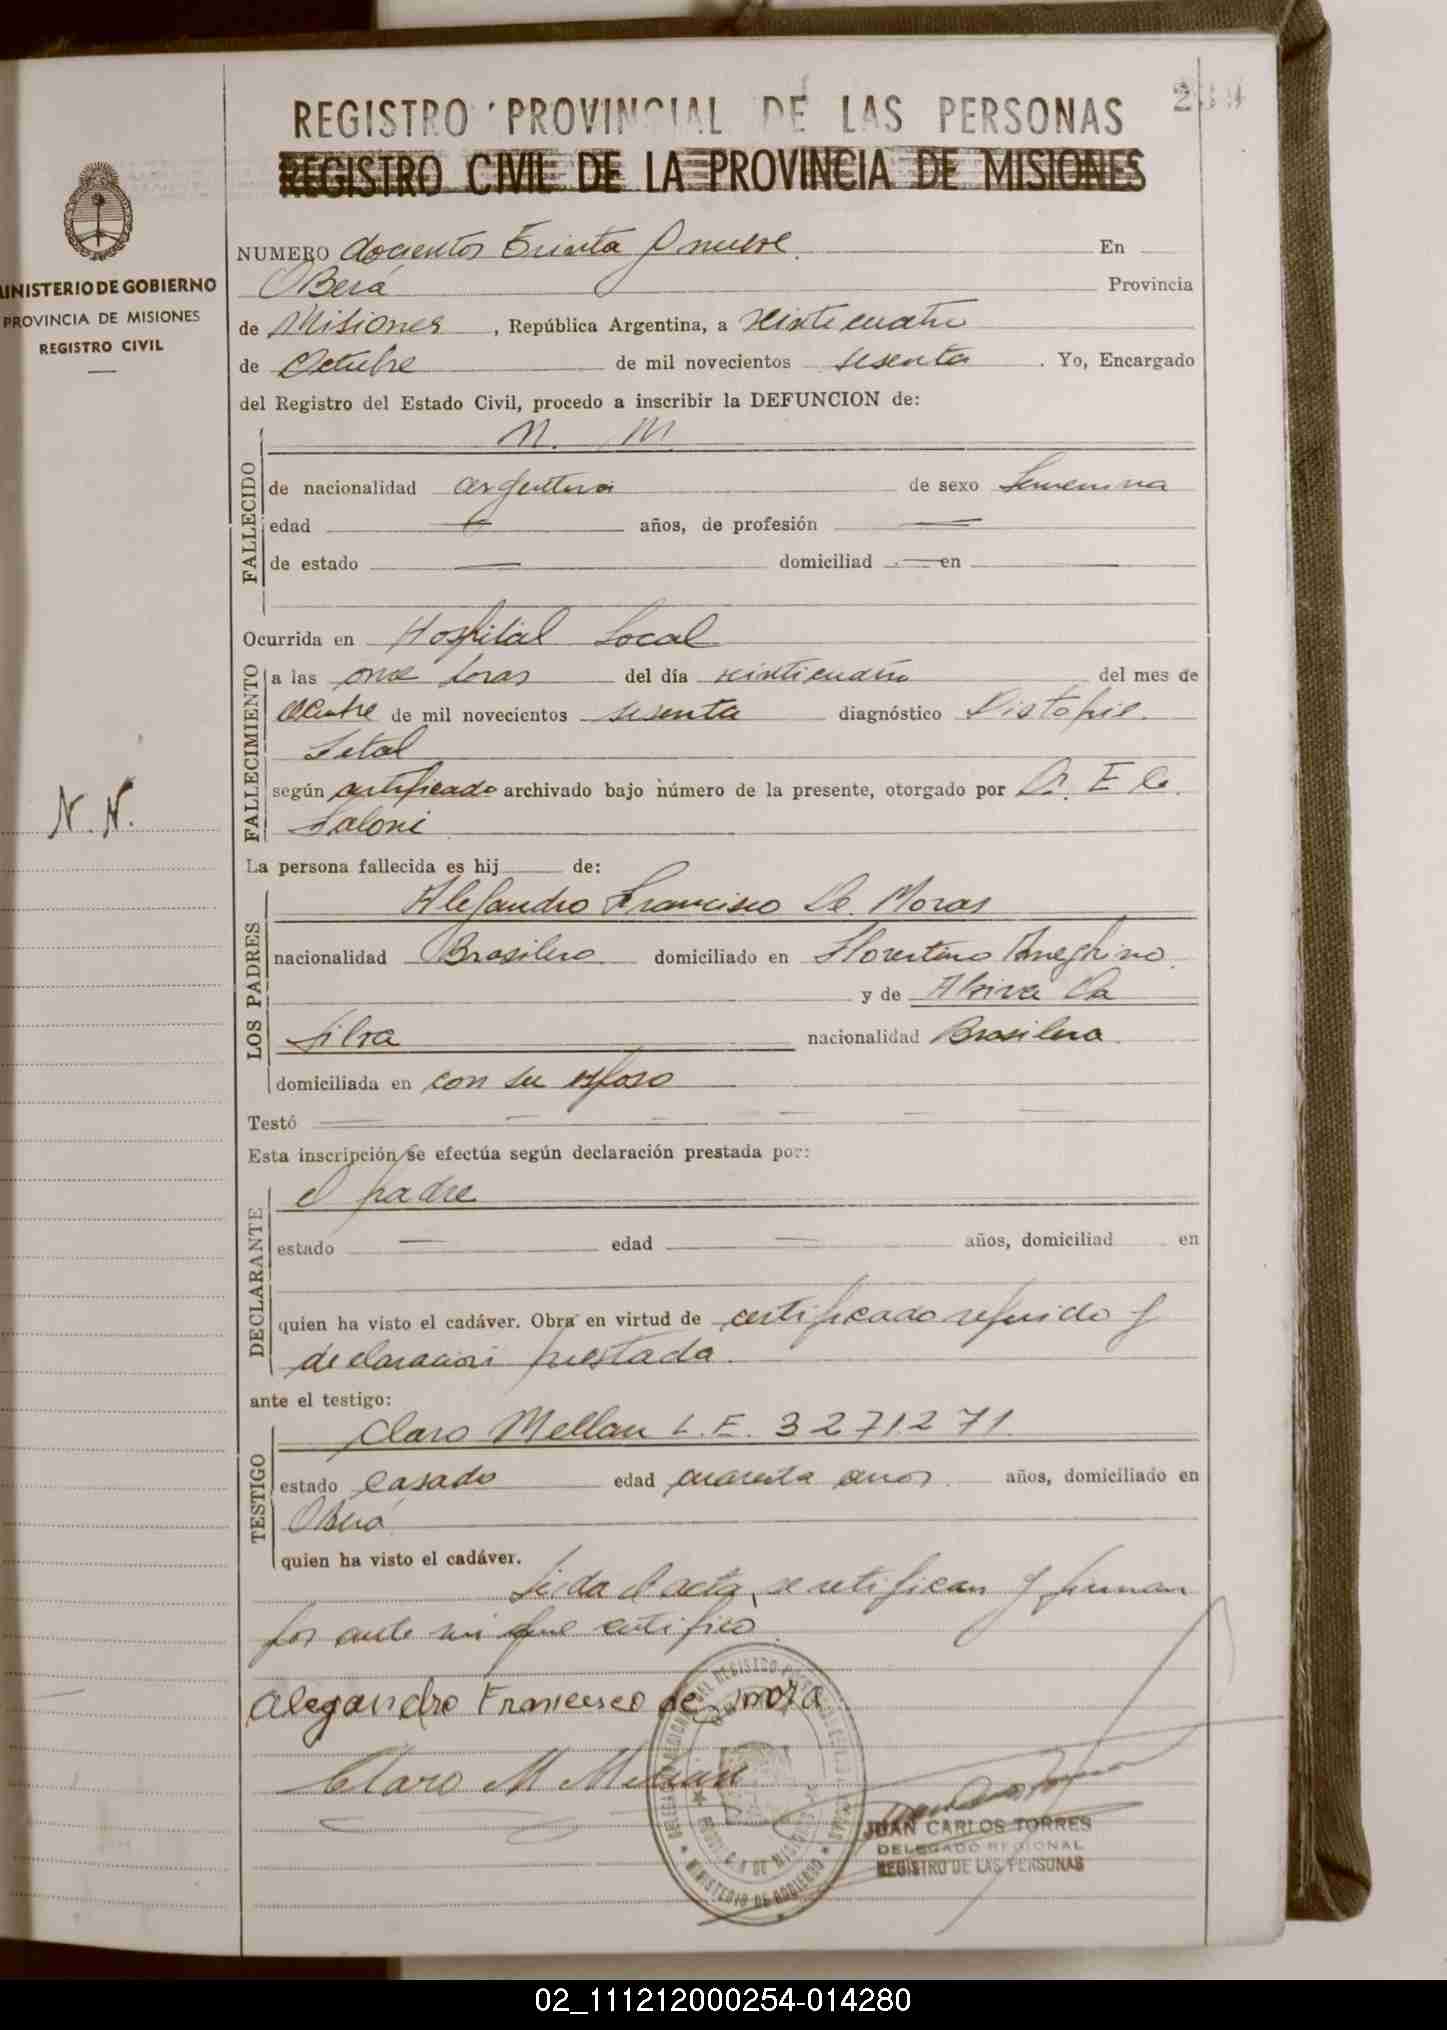 REGISTRO PROVINCIAL DE LAS PERSONAS
REGISTRO CIVIL DE LA PROVINCIA DE MISIONES
MINISTERIO DE GOBIERNO
PROVINCIA DE MISIONES
REGISTRO CIVIL
N. N.
NUMERO docientos Treinta y nueve. En
Oberá Provincia
de Misiones, República Argentina, a veinticuatro
de Octubre de mil novecientos sesenta. Yo, Encargado
del Registro del Estado Civil, procedo a inscribir la DEFUNCION de:
FALLECIDO
de nacionalidad argentina de sexo femenina
edad — años, de profesión —
de estado — domiciliad — en —
Ocurrida en Hospital Local
FALLECIMIENTO
a las once horas del día veinticuatro del mes de
Octubre de mil novecientos sesenta diagnóstico
fetal
según certificado archivado bajo número de la presente, otorgado por Dr. E
Saloni
La persona fallecida es hij de:
LOS PADRES
Alejandro Francisco De Moras
nacionalidad Brasilero domiciliado en Florentino Ameghino
y de Da
Silva nacionalidad Brasilera
domiciliada en con su esposo
Testó — — — — — —
Esta inscripción se efectúa según declaración prestada por:
DECLARANTE
el padre
estado — edad — años, domiciliad en
quien ha visto el cadáver. Obra en virtud de certificado referido y
declaracion prestada.
ante el testigo:
TESTIGO
Claro Mellan L. E. 3271271
estado Casado edad cuarenta años. años, domiciliado en
Oberá
quien ha visto el cadáver.
Leida el acta, se ratifican y firman
por ante mi que certifico
Alegandro Francisco de mora
Claro M
JUAN CARLOS TORRES
DELEGADO REGIONAL
REGISTRO DE LAS PERSONAS
MINISTERIO DE GOBIERNO
02_111212000254-014280